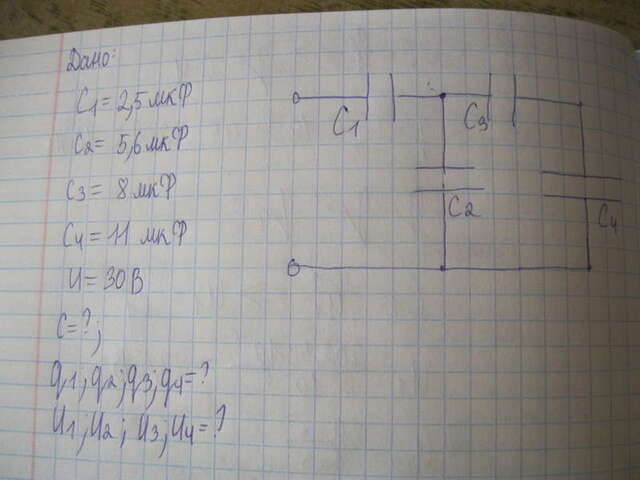 Дано:
C1 = 2,5 мкФ
C2 = 5,6 мкФ
C3 = 8 мкФ
C4 = 11 мкФ
U = 30 В
C = ? ;
q1; q2; q3; q4 = ?
U1; U2; U3; U4 = ?
C1
C3
C2
C4